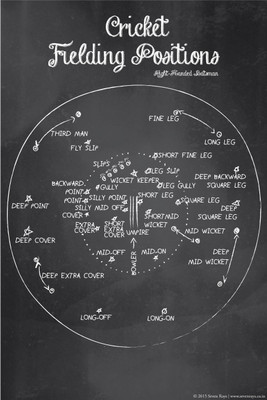 Cricket
Fielding Positions
Right-Handed Batsman
THIRD MAN
FINE LEG
LONG LEG
FLY SLIP
SLIPS
SHORT FINE LEG
LEG SLIP
WICKET KEEPER
GULLY
LEG GULLY
DEEP BACKWARD
SQUARE LEG
BACKWARD
POINT
POINT
SILLY POINT
SHORT LEG
SQUARE LEG
DEEP POINT
SILLY MID OFF
COVER
SHORT MID
WICKET
DEEP
SQUARE LEG
EXTRA
COVER
SHORT
EXTRA
COVER
UMPIRE
MID WICKET
DEEP COVER
MID-OFF
MID-ON
DEEP
MID WICKET
BOWLER
DEEP EXTRA COVER
LONG-OFF
LONG-ON